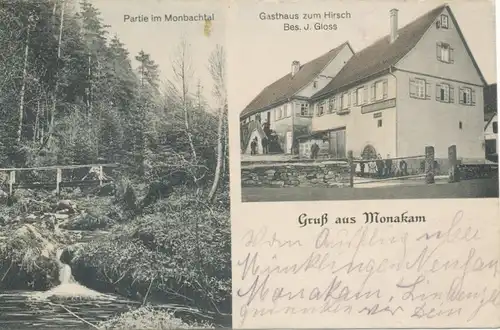 Partie im Monbachtal
Gasthaus zum Hirsch
Bes. J. Gloss
Gruß aus Monakam
Vom Ausflug über
Münklingen Neuhau
Monakam, Lie